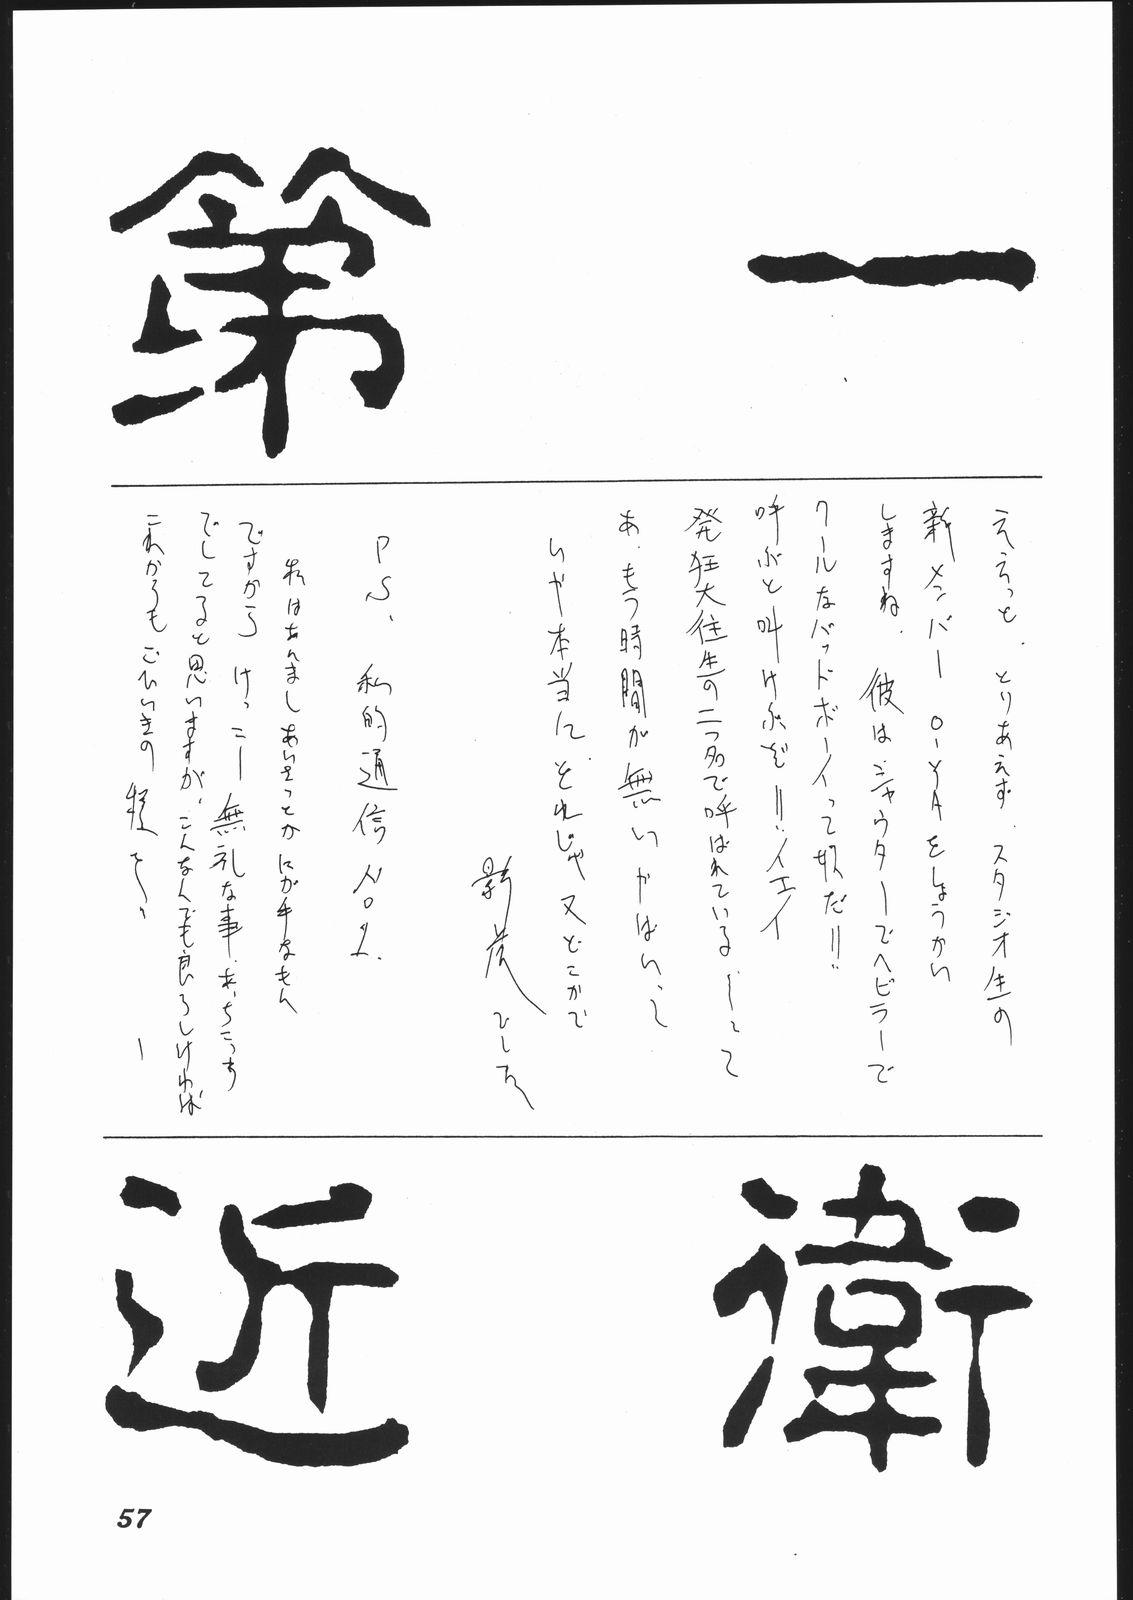 第一
ええっと、とりあえず、スタジオ生の
新メンバー O-YAをしょうかい
しますね。彼はシャウターでヘビラーで
クールなバッドボーイって奴だ!!
呼ぶと叫け ぶぞ!!イエイ
発狂大往生の二つ名で呼ばれている
あ、もう時間が無いやばいって
いや本当に、それじゃ又どこかで
影 ひしろ
PS、私的通信 No1.
私はあんまし あいさつとかにが手なもん
ですから けっこー無礼な事、あっちこっち
でしてると思いますが、こんなんでも良ろしければ
これからもごひいきの程を
近衛
57